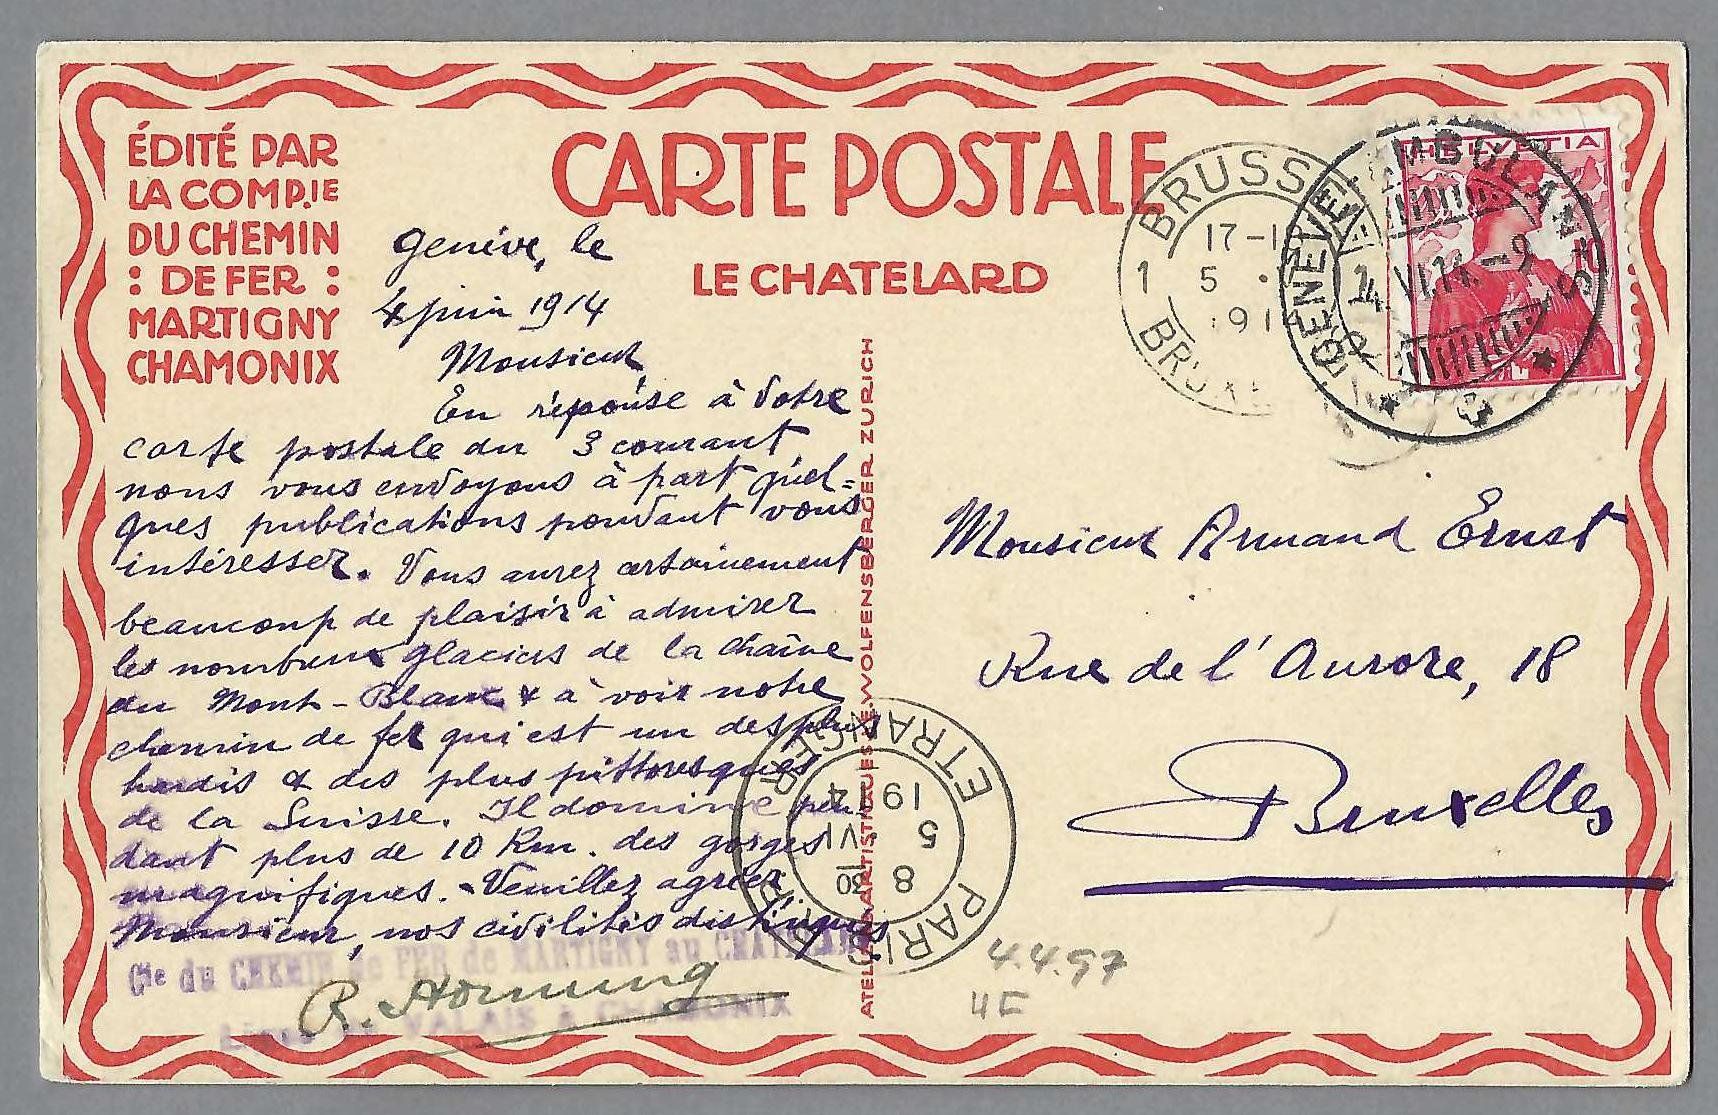 ÉDITÉ PAR
LA COMP.IE
DU CHEMIN
: DE FER :
MARTIGNY
CHAMONIX
CARTE POSTALE
LE CHATELARD
Genève, le
4 juin 1914
Monsieur,
En réponse à Votre
carte postale du 3 courant
nous vous envoyons à part quel=
ques publications pouvant vous
intéresser. Vous aurez certainement
beaucoup de plaisir à admirer
les nombreux glaciers de la chaîne
du Mont-Blanc & à voir notre
chemin de fer qui est un des plus
hardis & des plus pittoresques
de la Suisse. Il domine pen
dant plus de 10 Km. des gorges
magnifiques. - Veuillez agréer,
Monsieur, nos civilités distinguées
Cie du CHEMIN de FER de MARTIGNY au CHATELARD
VALAIS à CHAMONIX
R. Hornung
ATELIER ARTISTIQUES J.E. WOLFENSBERGER ZURICH
1 BRUSS
17-1
5
1914
BRUX
AMBULANT
GENEVE
14.VI.14.-9
HELVETIA
Monsieur Armand Ernst
Rue de l'Aurore, 18
Bruxelles
PARIS
ETRANGER
8 30
5 VI
19 14
4.4.97